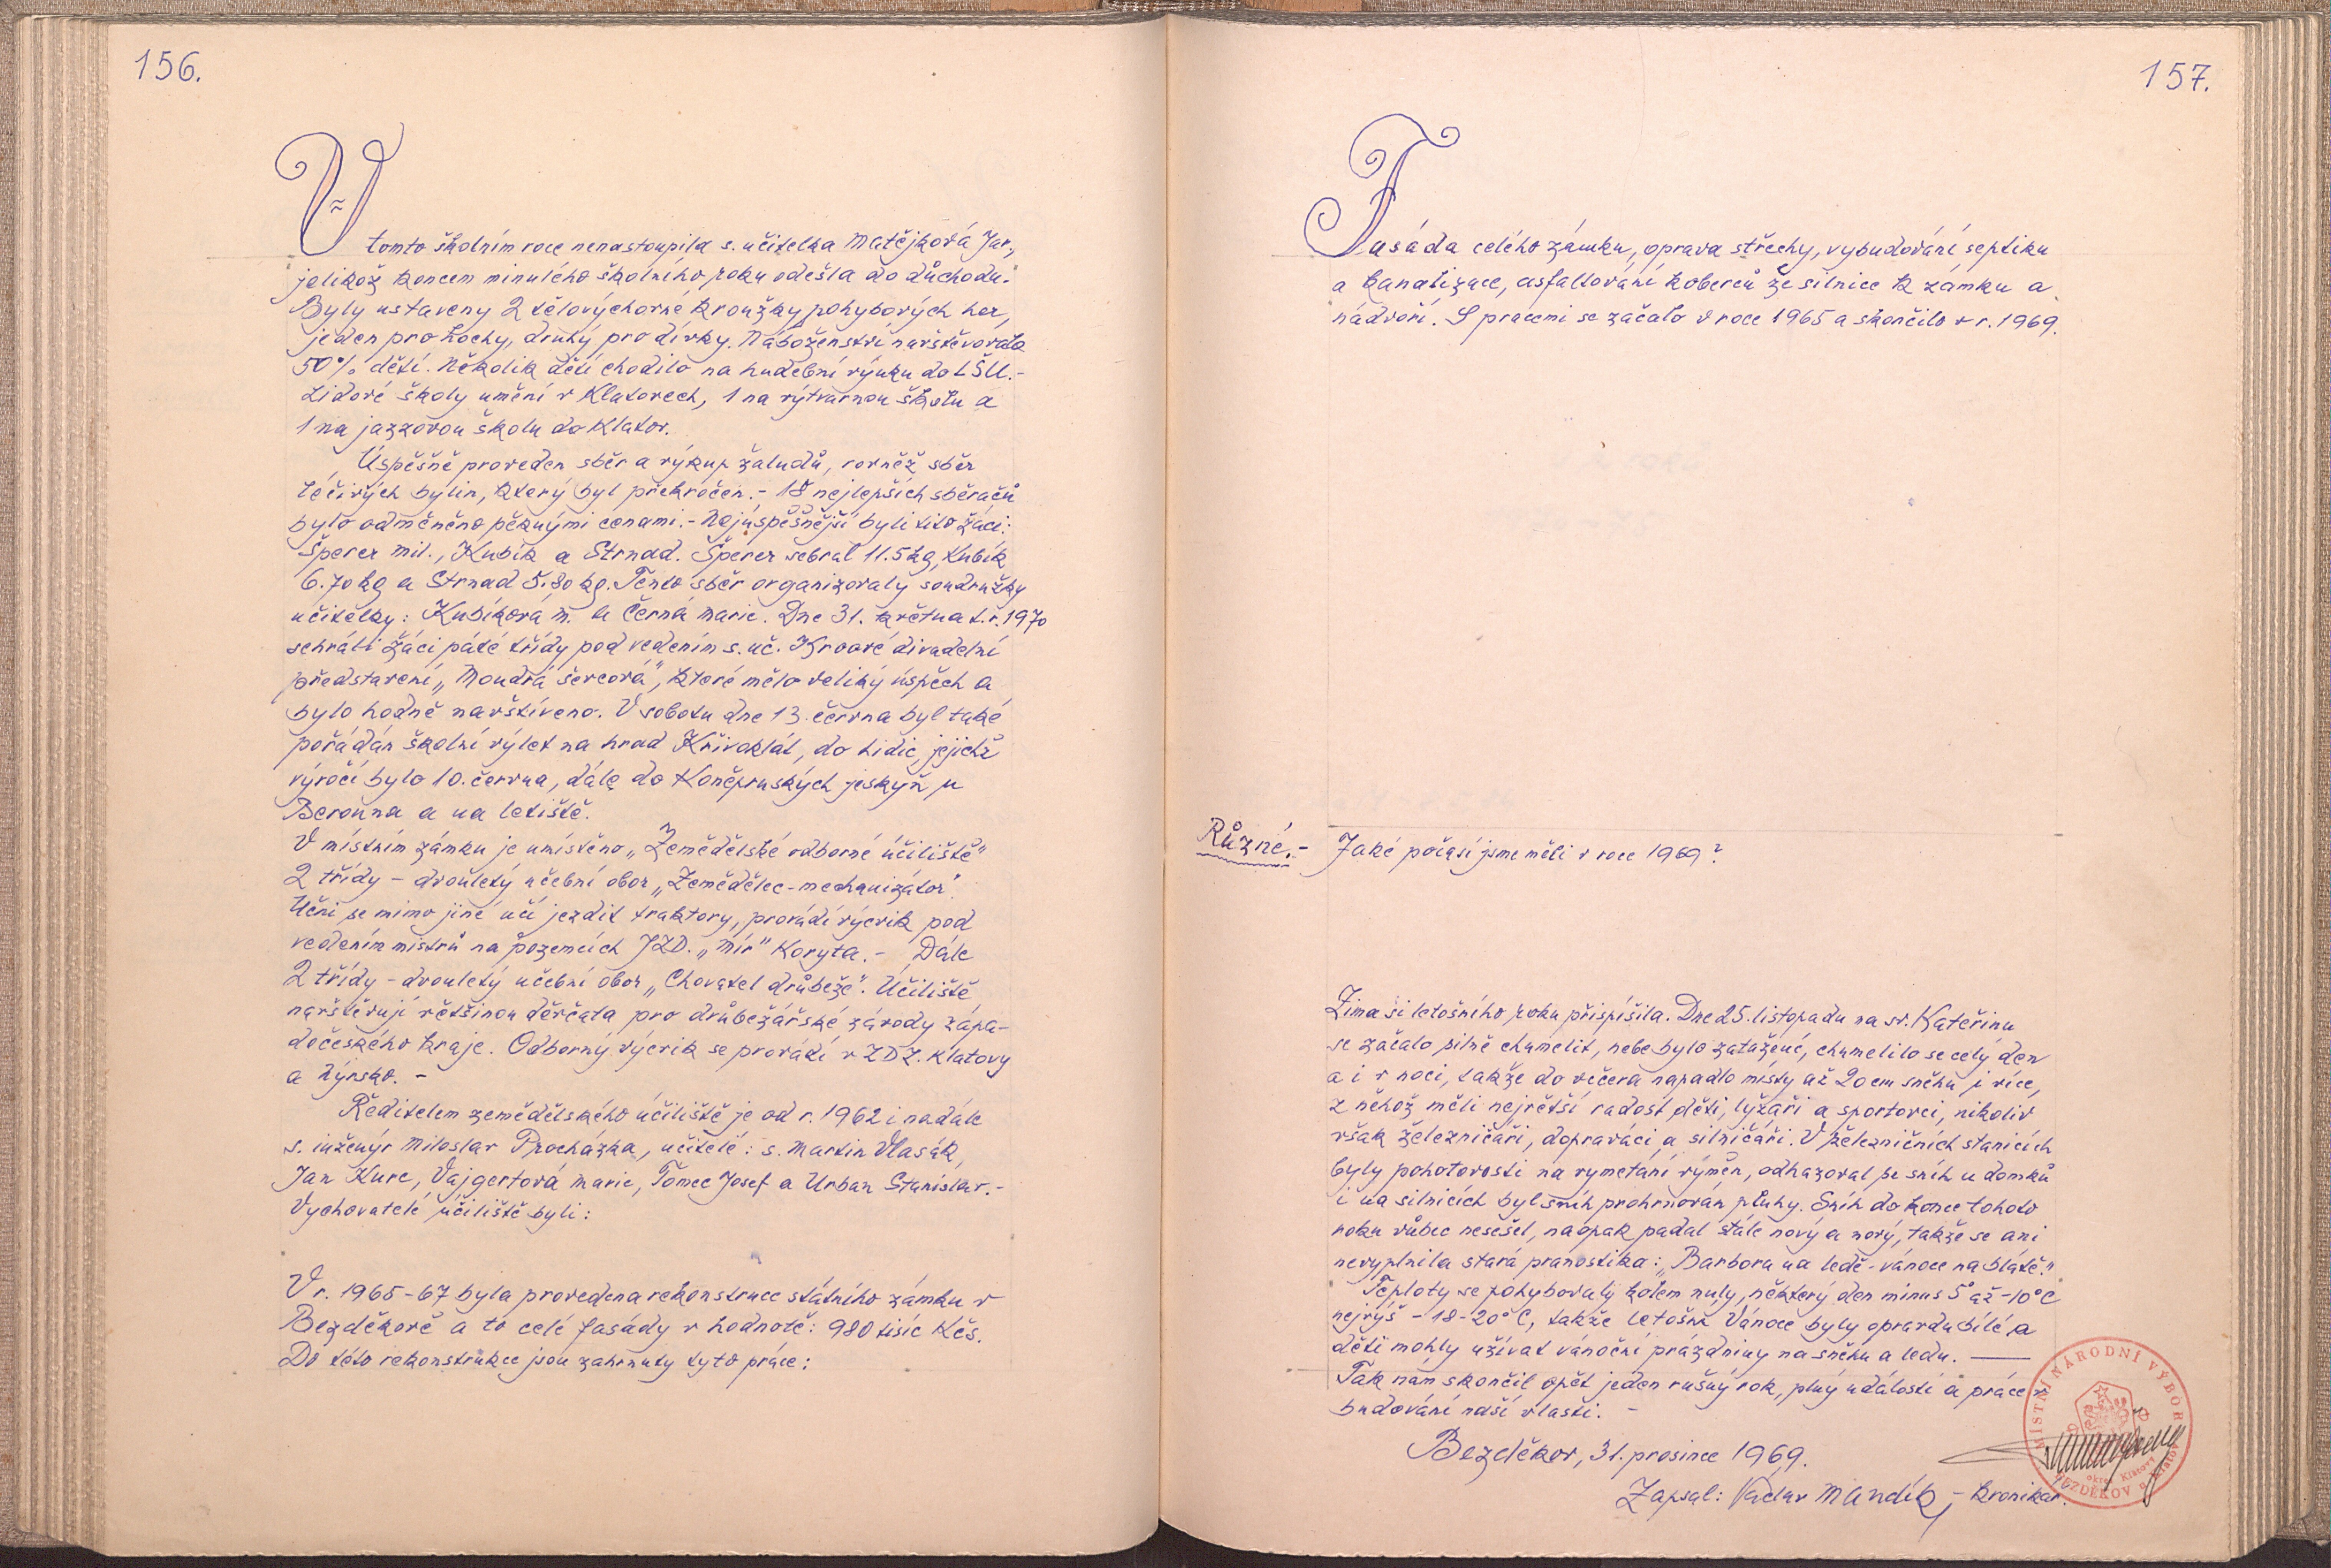 156.
V tomto školním roce nenastoupila s. učitelka Matějková Jar.,
jelikož koncem minulého školního roku odešla do důchodu.
Byly ustaveny 2 tělovýchovné kroužky pohybových her,
jeden pro hochy, druhý pro dívky. Náboženství navštěvovalo
50% dětí. Několik dětí chodilo na hudební výuku do LŠU.-
Lidové školy umění v Klatovech, 1 na výtvarnou školu a
1 na jazzovou školu do Klatov.
Úspěšně proveden sběr a výkup žaludů, rovněž sběr
léčivých bylin, který byl překročen.- 18 nejlepších sběračů
bylo odměněno pěknými cenami.- Nejúspěšnější byli tito žáci:
Šperer Mil., Kubík a Strnad. Šperer sebral 11.5 kg, Kubík
6.70 kg a Strnad 5.80 kg. Tento sběr organizovaly soudružky
učitelky: Kubíková M. a Černá Marie. Dne 31. května t.r. 1970
sehráli žáci páté třídy pod vedením s. uč. divadelní
představení „Moudrá ševcová", které mělo veliký úspěch a
bylo hodně navštíveno. V sobotu dne 13. června byl také
pořádán školní výlet na hrad Křivoklát, do Lidic, jejichž
výročí bylo 10. června, dále do Koněpruských jeskyň u
Berouna a na letiště.
V místním zámku je umístěno „Zemědělské odborné účiliště"
2 třídy - dvouletý učební obor „Zemědělec-mechanizátor".
Učni se mimo jiné učí jezdit traktory, provádí výcvik pod
vedením mistrů na pozemcích JZD. „Mír" Koryta.- Dále
2 třídy - dvouletý učební obor „Chovatel drůbeže". Účiliště
navštěvují většinou děvčata pro drůbežářské závody zápa-
dočeského kraje. Odborný výcvik se provádí v ZDZ. Klatovy
a Nýrsko. -
Ředitelem zemědělského účiliště je od r. 1962 i nadále
s. inženýr Miloslav Procházka, učitelé: s. Martin Vlasák,
Jan Kurc, Vajgertová Marie, Tomec Josef a Urban Stanislav.-
Vychovatelé účiliště byli:
V r. 1965-67 byla provedena rekonstruce státního zámku v
Bezděkově a to celé fasády v hodnotě: 980 tisíc Kčs.
Do této rekonstrukce jsou zahrnuty tyto práce:
157.
Fasáda celého zámku, oprava střechy, vybudování septiku
a kanalizace, asfaltování koberců ze silnice k zámku a
nádvoří. S pracemi se začalo v roce 1965 a skončilo v r. 1969.
Různé.- Jaké počasí jsme měli v roce 1969?
Zima si letošního roku přispíšila. Dne 25. listopadu na sv. Kateřinu
se začalo silně chumelit, nebe bylo zatažené, chumelilo se celý den
a i v noci, takže do večera napadlo místy až 20 cm sněhu i více,
z něhož měli největší radost děti, lyžaři a sportovci, nikoliv
však železničáři, dopraváci a silničáři. V železničních stanicích
byly pohotovosti na vymetání výměn, odhazoval se sníh u domků
i na silnicích byl sníh prohrnován pluhy. Sníh do konce tohoto
roku vůbec nesešel, naopak padal stále nový a nový, takže se ani
nevyplnila stará pranostika: „Barbora na ledě - vánoce na blátě."
Teploty se pohybovaly kolem nuly, některý den minus 5° až -10°C
nejvýš - 18-20°C, takže letošní Vánoce byly opravdu bílé a
děti mohly užívat vánoční prázdniny na sněhu a ledu. —
Tak nám skončil opět jeden rušný rok, plný událostí a práce v
budování naší vlasti. -
Bezděkov, 31. prosince 1969.
Zapsal: Václav Mandík, - kronikář.
MÍSTNÍ NÁRODNÍ VÝBOR
okres Klatovy
BEZDĚKOV u Klatov